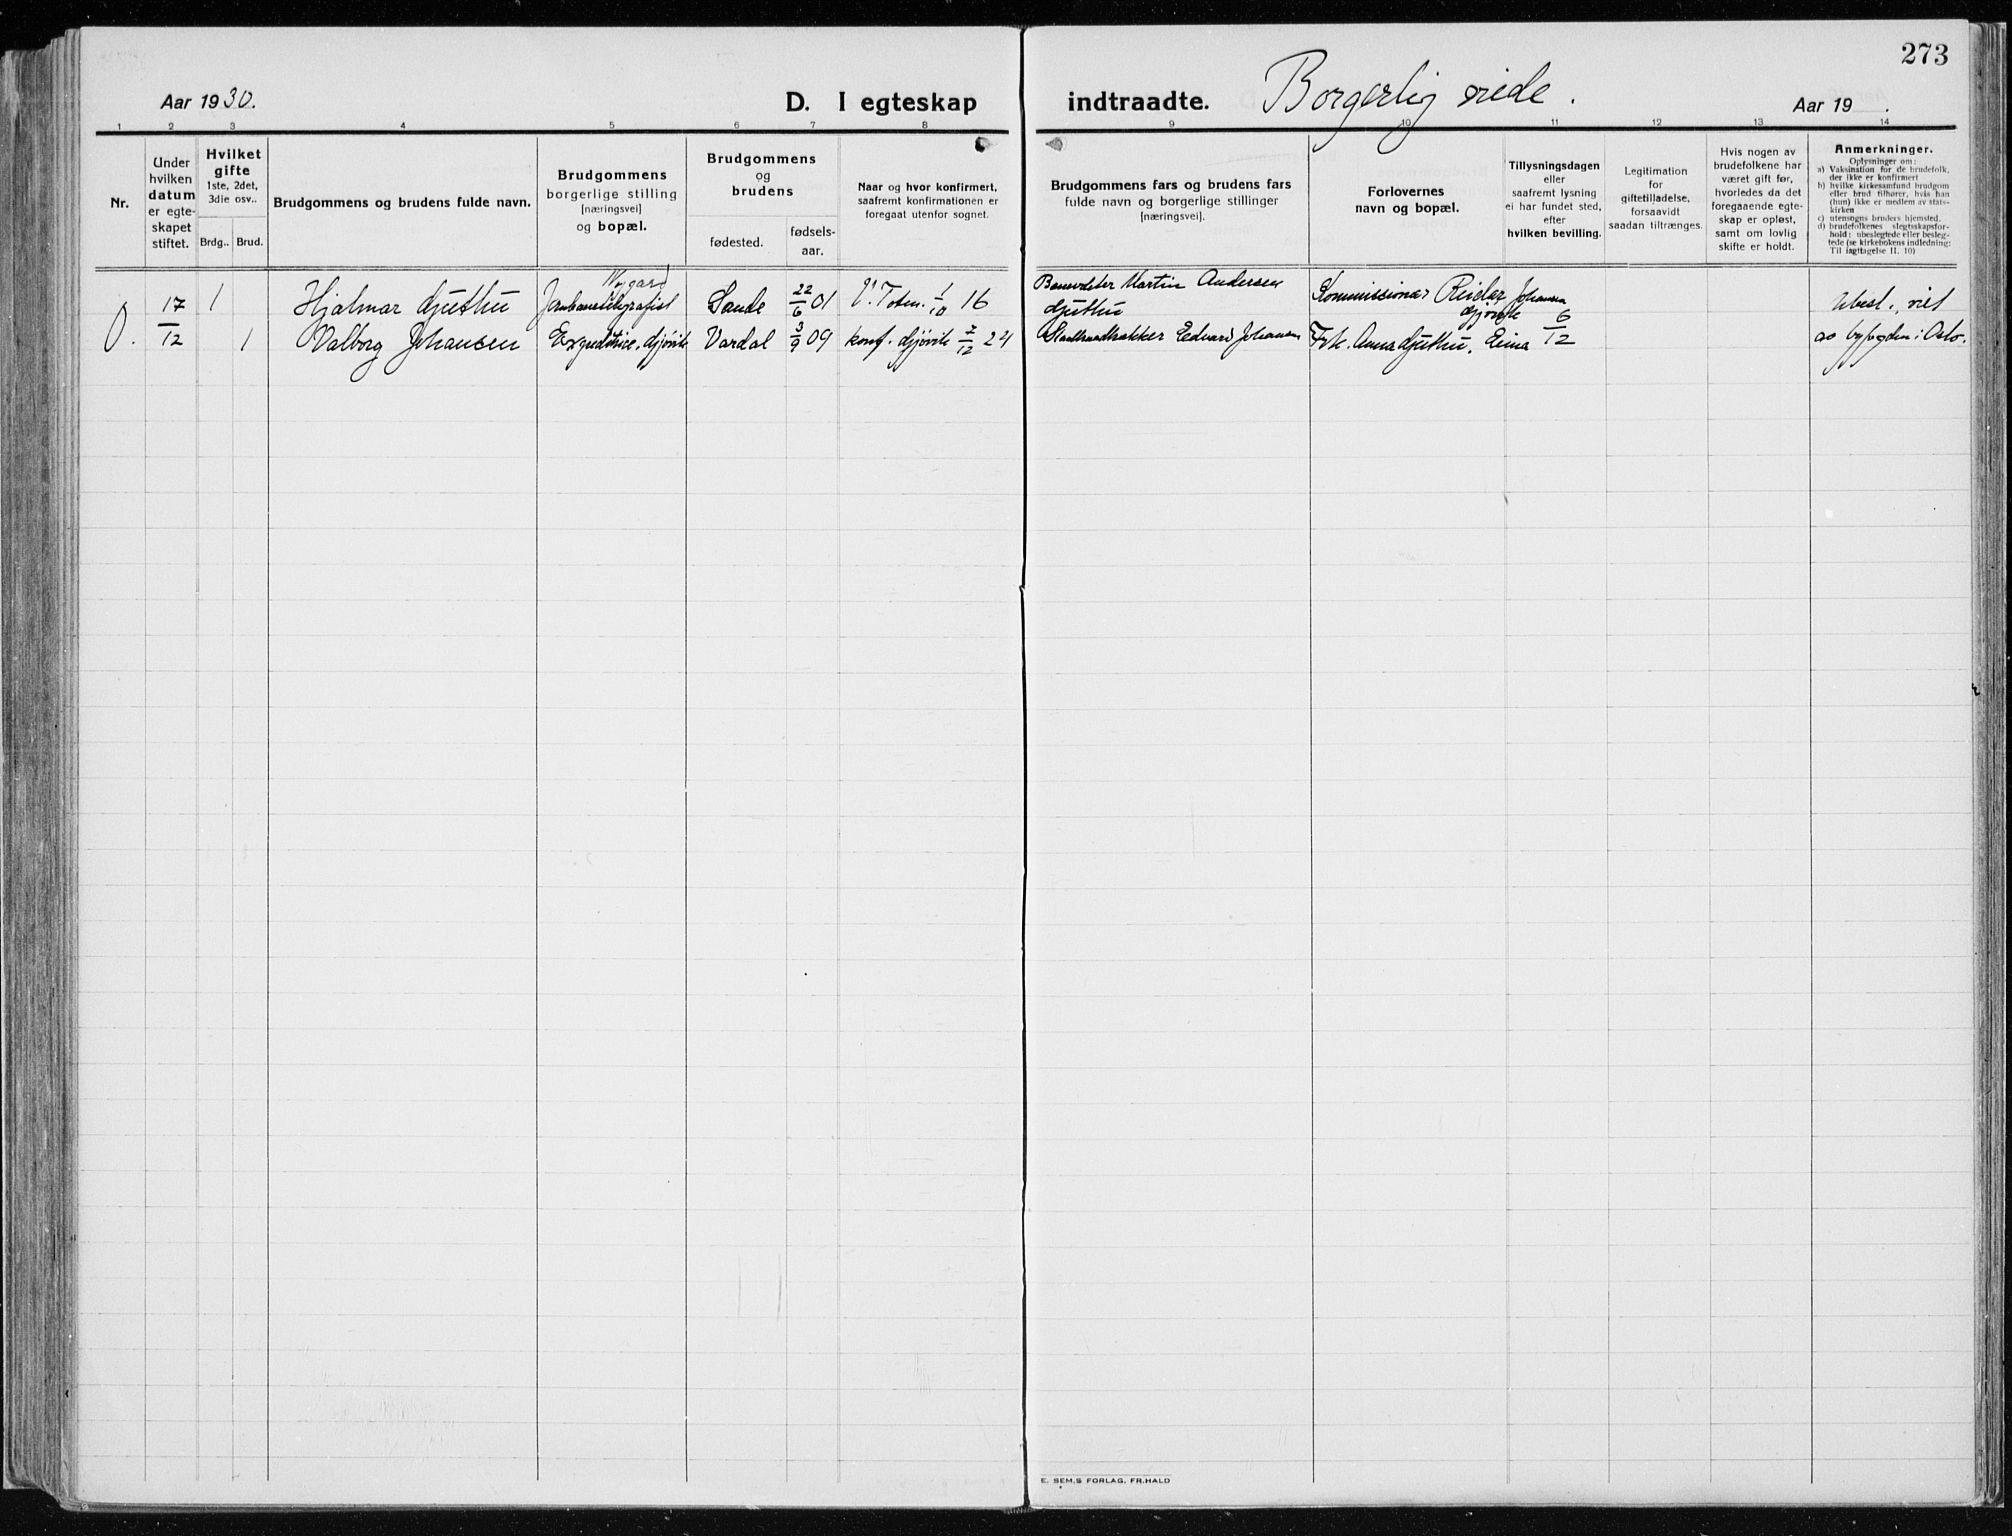 273
Aar 1930.
D. I egteskap
indtraadte.
Borgerlig viede.
Aar 19 .
1 2 3 4 5 6 7 8
9 10 11 12 13 14
Nr.
Under
hvilken
datum
er egte-
skapet
stiftet.
Hvilket
gifte
1ste, 2det,
3die osv..
Brdg.. Brud.
Brudgommens og brudens fulde navn.
Brudgommens
borgerlige stilling
[næringsvei]
og bopæl.
Brudgommens
og
brudens
fødested.
fødsels-
aar.
Naar og hvor konfirmert,
saafremt konfirmationen er
foregaat utenfor sognet.
Brudgommens fars og brudens fars
fulde navn og borgerlige stillinger
[næringsvei].
Forlovernes
navn og bopæl.
Tillysningsdagen
eller
saafremt lysning
ei har fundet sted,
efter
hvilken bevilling.
Legitimation
for
giftetilladelse,
forsaavidt
saadan tiltrænges.
Hvis nogen av
brudefolkene har
været gift før,
hvorledes da det
foregaaende egte-
skap er opløst,
samt om lovlig
skifte er holdt.
Anmerkninger.
Oplysninger om:
a) Vaksination for de brudefolk,
der ikke er konfirmert
b) hvilke kirkesamfund brudgom
eller brud tilhører, hvis han
(hun) ikke er medlem av stats-
kirken
c) utensogns bruders hjemsted.
d) brudefolkenes slegtsskapsfor-
hold: ubeslegtede eller besleg-
tede (se kirkebokens indledning:
Til iagttagelse II. 10)
0. 17/12
1 Hjalmar Gjuthu
Nygard
Jernbanetelegrafist
Sande 22/6 01
V. Toten 1/10 16
Martin Andersen
Gjuthu
Kommissionær Reidar Johansen
Gjøvik
6/12
Ubesl., viet
1 Valborg Johansen
Expeditrice, Gjøvik
Vardal 3/9 09
konf. Gjøvik 7/12 24
Edvard Johansen
Frk. Anna Gjuthu, Eina
av byfogden i Oslo.
E. SEM.S FORLAG, FR.HALD